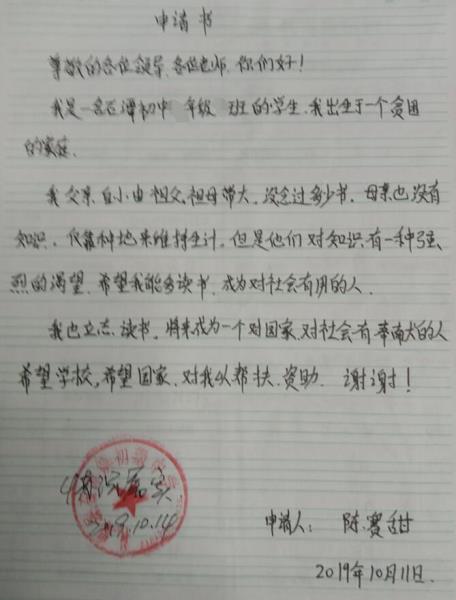 申请书
尊敬的各位领导、各位老师、你们好！
我是一名石潭初中 年级 班的学生、我出生于一个贫困
的家庭.
我父亲自小由祖父、祖母带大。没念过多少书、母亲也没有
知识、仅靠种地来维持生计。但是他们对知识有一种强
烈的渴望、希望我能多读书、成为对社会有用的人.
我也立志、读书。将来成为一个对国家、对社会有奉献大的人
希望学校，希望国家、对我以帮扶、资助. 谢谢！
情况属实
2019.10.14
申请人： 陈赛甜
2019年10月11日.